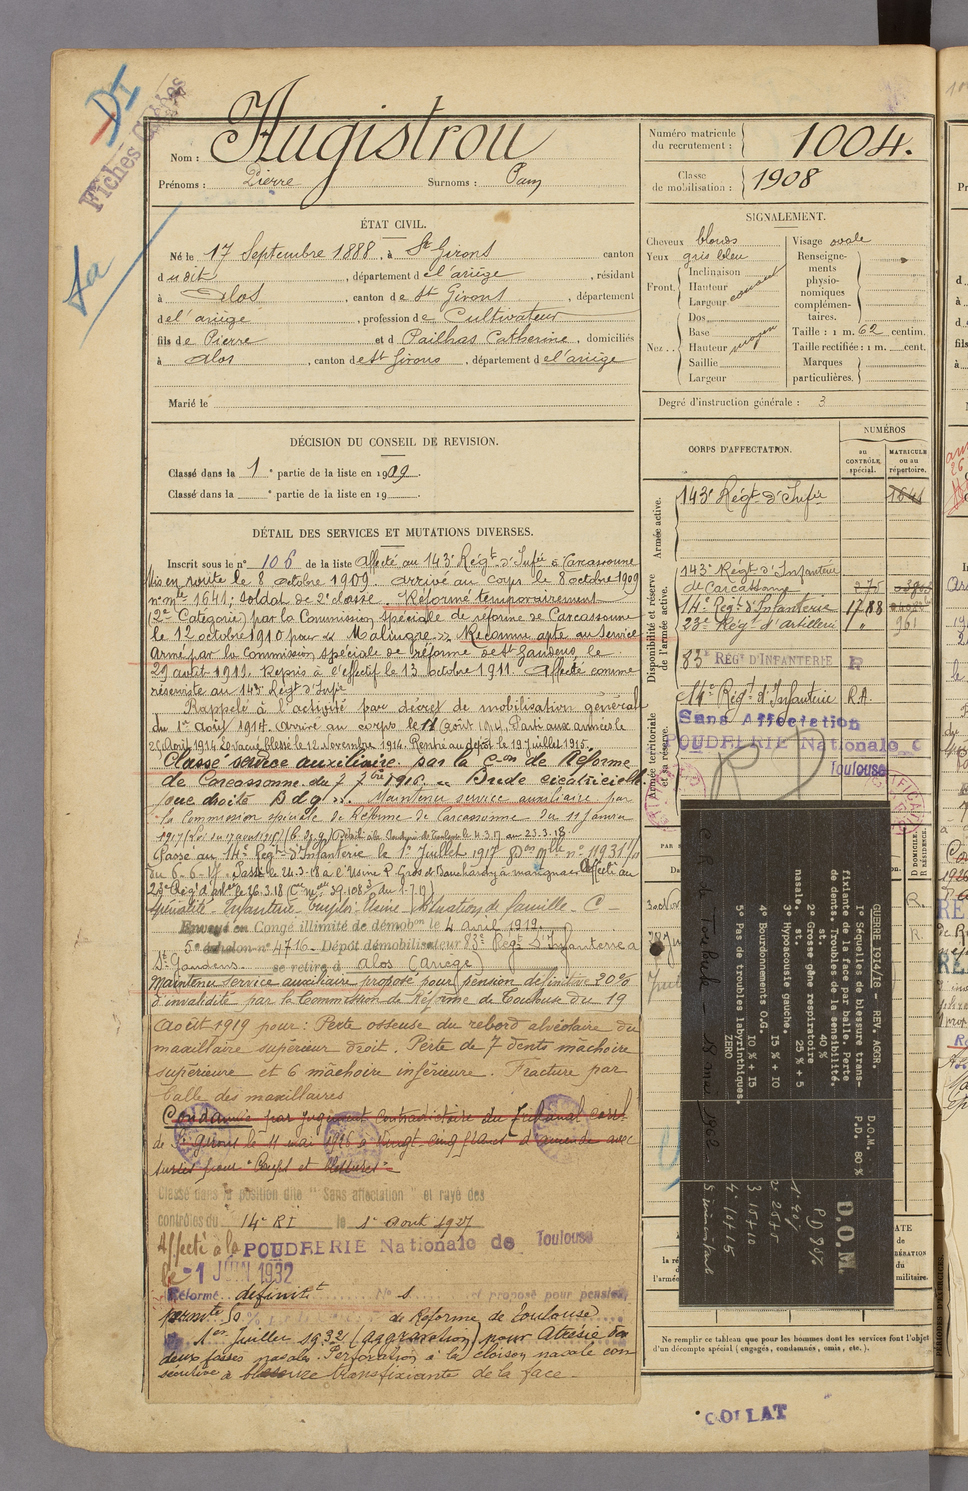 DI
Fiches
Nom : Augistrou
Prénoms : Pierre Surnoms : Pam
Numéro matricule
du recrutement : 1004.
Classe
de mobilisation : 1908
ÉTAT CIVIL.
Né le 17 Septembre 1888, à St Girons canton
dudit, département de l'ariège, résidant
à Alos, canton de St Girons, département
de l'ariège, profession de Cultivateur
fils de Pierre et d Pailhas Catherine, domiciliés
à Alos, canton de St Girons, département de l'ariège
Marié le
SIGNALEMENT.
Cheveux blonds
Yeux gris bleu
Front. Inclinaison
Hauteur
Largeur
Nez.. Dos
Base
Hauteur moyen
Saillie
Largeur
Visage ovale
Renseigne-
ments
physio-
nomiques
complémen-
taires.
Taille : 1 m. 62 centim.
Taille rectifiée : 1 m. cent.
Marques
particulières.
Degré d'instruction générale : 3
DÉCISION DU CONSEIL DE REVISION.
Classé dans la 1e partie de la liste en 1909.
Classé dans la e partie de la liste en 19
CORPS D'AFFECTATION.
NUMÉROS
au
CONTRÔLE
spécial.
MATRICULE
ou au
répertoire.
Armée active.
143e Régt d'Infie 1641
Disponibilité et réserve
de l'armée active.
143e Régt d'Infanterie
de Carcassonne 275
14e Régt d'Infanterie 1788
23e Régt d'artillerie " 961
83e RÉGT D'INFANTERIE
14e Régt d'Infanterie R.A.
Armée territoriale
et sa réserve.
Sans Affectation
POUDRERIE Nationale
Toulouse
DÉTAIL DES SERVICES ET MUTATIONS DIVERSES.
Inscrit sous le n° 106 de la liste Affecté au 143e Régt d'Infie à Carcassonne
Mis en route le 8 octobre 1909. arrivé au corps le 8 octobre 1909
n° mle 1641; soldat de 2e classe. Réformé temporairement
(2e Catégorie) par la Commission spéciale de réforme de Carcassonne
le 12 octobre 1910 pour « Malingre ». Reconnu apte au service
armé par la Commission spéciale de réforme de St Gaudens le
29 août 1911. Repris à l'effectif le 13 octobre 1911. Affecté comme
réserviste au 143e Régt d'Infie
Rappelé à l'activité par décret de mobilisation général
du 1er Août 1914. Arrivé au corps le 11 Août 1914. Parti aux armées le
Août 1914. Évacué blessé le 12 Novembre 1914. Rentré au dépôt le 19 Juillet 1915.
Classé service auxiliaire par la Con de Réforme
de Carcassonne du 7 7bre 1916. Bride cicatricielle
joue droite B d g ». Maintenu service auxiliaire par
la Commission spéciale de Réforme de Carcassonne du 11 Janvier
1917
Passé au 14e Regt d'Infanterie le 1er Juillet 1917
du 6-6-17. Passé le 24-3-18 à l'Usine
23e Rég d'artie le 26.3.18
spécialité - Infanterie Emploi - Usine Situation de famille - C -
Envoyé en Congé illimité de démobon le 4 avril 1919.
5e échelon n° 4716 - Dépôt démobilisateur 83e Régt d'Infanterie à
St Gaudens. se retire à Alos (Ariège)
Maintenu service auxiliaire proposé pour pension définitive 20%
d'invalidité par la Commission de Réforme de Toulouse du 19
Août 1919 pour : Perte osseuse du rebord alvéolaire du
maxillaire supérieur droit. Perte de 7 dents mâchoire
supérieure et 6 mâchoire inférieure. Fracture par
balle des maxillaires
Condamné par jugement contradictoire du Tribunal corel
de St Girons le 11 mai 1926 à vingt cinq francs d'amende avec
sursis pour "Coups et blessures"
Classé dans la position dite " Sans affectation " et rayé des
contrôles du 14e RI le 1er Août 1927
Affecté à la POUDRERIE Nationale de Toulouse
le -1 JUIN 1932
Réformé définitt N° 1 et proposé pour pension
permte de Réforme de Toulouse
1er Juillet 1932 (aggravation) pour Atrésie des
deux fosses nasales. Perforation à la cloison nasale con
sécutive à blessure transfixiante de la face.
GUERRE 1914/18 - REV. AGGR. D.O.M.
1° Séquelles de blessure trans- P.D. 80 %
fixiante de la face par balle. Perte
de dents. Troubles de la sensibilité.
st. 40 %
2° Grosse gêne respiratoire
nasale. st. 25 % + 5
3° Hypoacousie gauche.
15 % + 10
4° Bourdonnements O.G.
10 % + 15
5° Pas de troubles labyrinthiques.
ZERO
D.O.M
PD 80%
1° 40%
2° 25+5
3° 15+10
4° 10+15
C R de Toulouse 18 mai 1962
Ne remplir ce tableau que pour les hommes dont les services font l'objet
d'un décompte spécial (engagés, condamnés, omis, etc.).
COLLAT